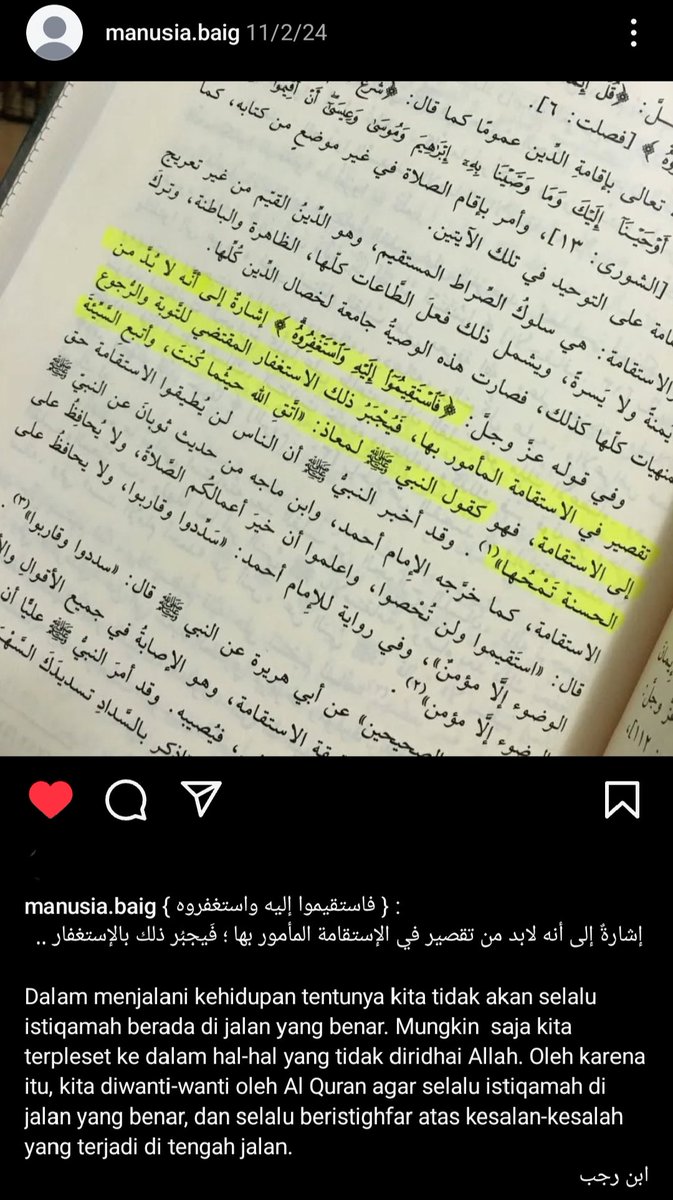 manusia.baig 11/2/24
سلَّ: ﴿قُلْ إِنَّمَا
﴾ [فصلت: ٦].
تعالى بإقامةِ الدِّين عمومًا كما قال: ﴿شَرَعَ
أَوْحَيْنَآ إِلَيْكَ وَمَا وَصَّيْنَا بِهِۦٓ إِبْرَٰهِيمَ وَمُوسَىٰ وَعِيسَىٰٓ أَنْ أَقِيمُوا
[الشورى: ١٣]، وأمر بإقام الصلاة في غير موضعٍ من كتابه، كما
امة على التوحيد في تلك الآيتين.
الاستقامة: هي سلوكُ الصِّراط المستقيم، وهو الدِّينُ القيِّم من غير تعريج
يمنةً ولا يَسرةً، ويشمل ذلك فعلَ الطَّاعات كلِّها، الظاهرة والباطنة، وتركَ
منهيات كلِّها كذلك، فصارت هذه الوصيةُ جامعة لخصال الدِّين كُلِّها.
وفي قوله عزَّ وجلَّ: ﴿فَٱسْتَقِيمُوٓا۟ إِلَيْهِ وَٱسْتَغْفِرُوهُ﴾ إشارةٌ إلى أنَّه لا بُدَّ من
تقصير في الاستقامة المأمور بها، فَيُجْبَرُ ذلك الاستغفار المقتضي للتَّوبة والرُّجوع
إلى الاستقامة، فهو كقول النبيِّ ﷺ لمعاذ: «اتقِ الله حيثُما كُنتَ، وأتبع السَّيِّئةَ
الحسنةَ تَمْحُها»(١). وقد أخبر النبيُّ ﷺ أن الناس لن يُطيقوا الاستقامة حق
الاستقامة، كما خرَّجه الإمام أحمد، وابن ماجه من حديث ثوبانَ عن النبيِّ ﷺ
قال: «استَقيموا ولن تُحْصوا، واعلموا أن خيرَ أعمالكُم الصَّلاةُ، ولا يُحافِظُ على
الوضوء إلَّا مؤمنٌ»، وفي رواية للإمام أحمد: «سَدِّدوا وقاربوا، ولا يحافظُ على
الوضوء إلَّا مؤمن»(٢).
الصحيحين» عن أبي هريرة عن النبي ﷺ قال: «سددوا وقاربوا»(٣).
قة الاستقامة، وهو الإصابةُ في جميع الأقوالِ والأ
، فيُصيبه. وقد أمرَ النبيُّ ﷺ عليًّا أن
ذكر بالسَّدادِ تسديدَكَ السَّهْمَ
manusia.baig { فاستقيموا إليه واستغفروه } :
إشارةٌ إلى أنه لابد من تقصير في الإستقامة المأمور بها ؛ فَيجبُر ذلك بالإستغفار ..
Dalam menjalani kehidupan tentunya kita tidak akan selalu
istiqamah berada di jalan yang benar. Mungkin saja kita
terpleset ke dalam hal-hal yang tidak diridhai Allah. Oleh karena
itu, kita diwanti-wanti oleh Al Quran agar selalu istiqamah di
jalan yang benar, dan selalu beristighfar atas kesalan-kesalah
yang terjadi di tengah jalan.
ابن رجب